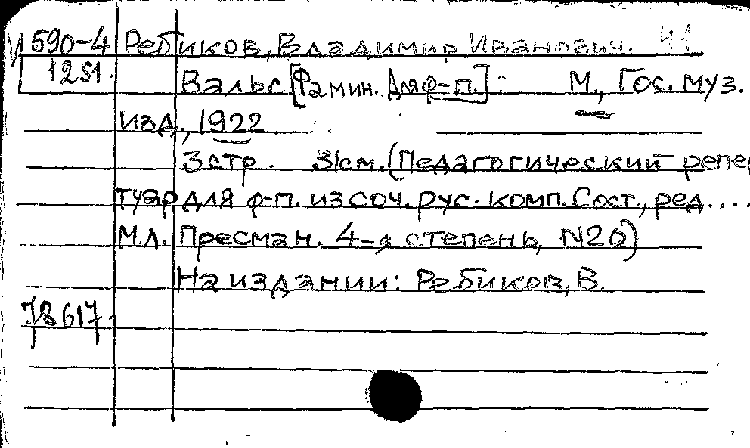 И 590-4 Ребиков, Владимир Иванович.
1251. Вальс [Фа мин. Для ф-п.] М., Гос. муз.
изд., 1922
3 стр. 31 см. (Педагогический репер
туар для ф-п. из соч. рус. комп. Сост., ред. ...
М.Л. Пресман. 4-я степень, N20)
На издании: Ребиков, В.
78617